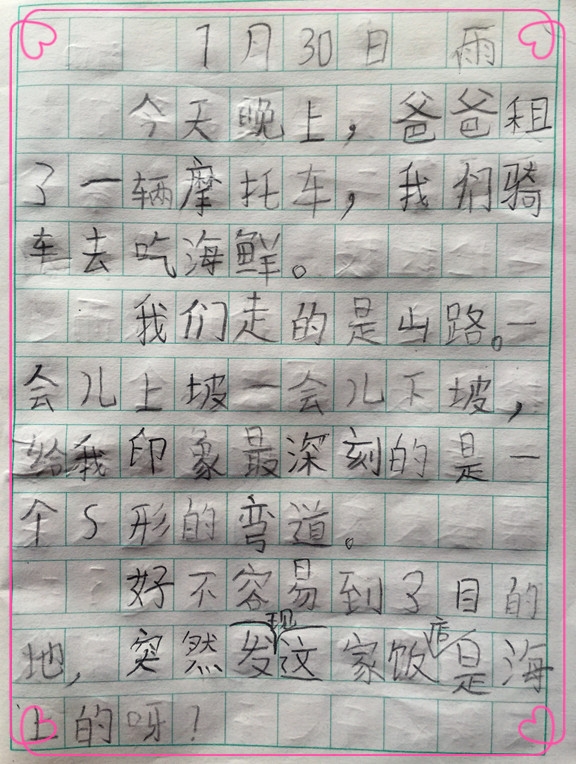 7月30日 雨
今天晚上，爸爸租
了一辆摩托车，我们骑
车去吃海鲜。
我们走的是山路。一
会儿上坡一会儿下坡，
给我印象最深刻的是一
个S形的弯道。
好不容易到了目的
地，突然发现这家饭店是海
上的呀？